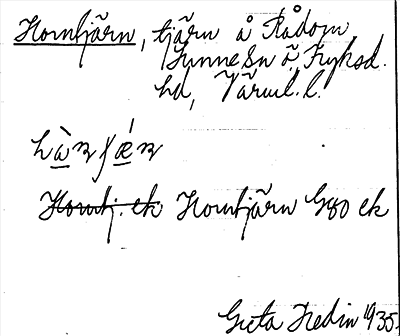 Horntjärn, tjärn å Rådom
Sunne sn Ö. Fryksd.
hd, Värml. l.
Horntj. ek Horntjärn G80 ek
Greta Hedin 1935.